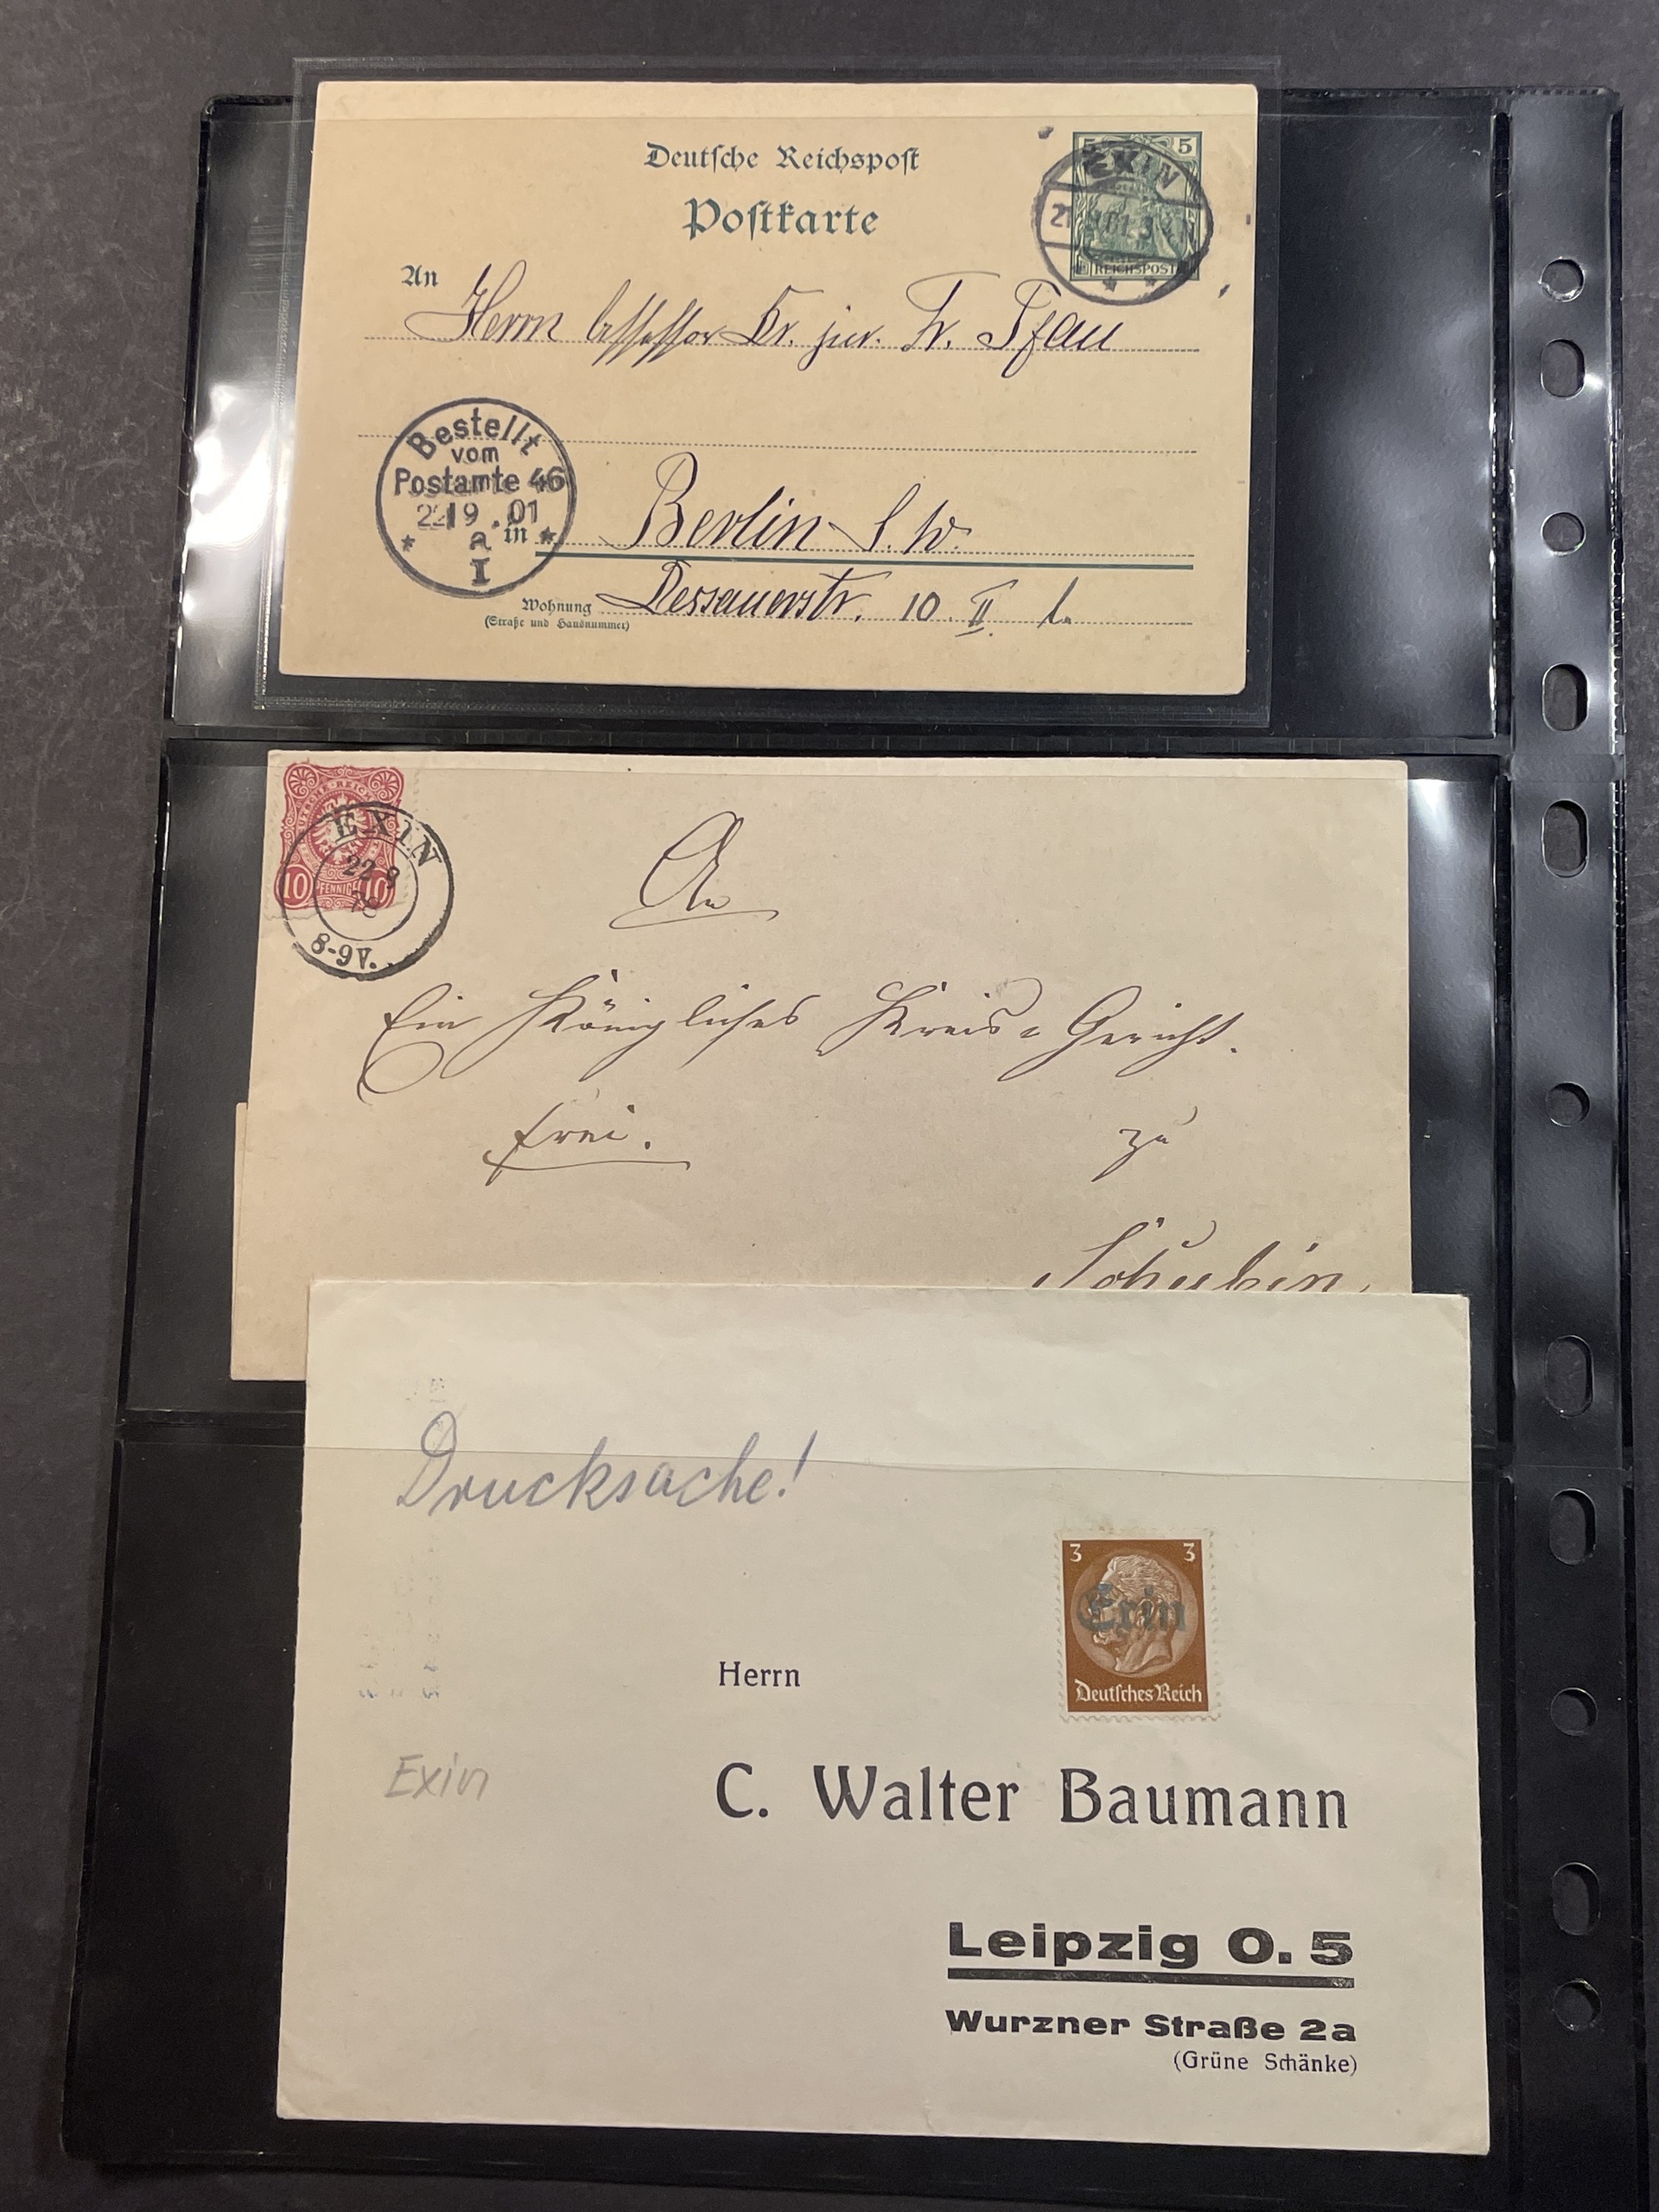 Deutsche Reichspost
Postkarte
5 5
EXIN
REICHSPOST
An Herrn Assessor Dr. jur. Fr. Pfau
Bestellt
vom
Postamte 46
22/9.01
a
I
in Berlin S. W.
Wohnung Dessauerstr. 10 II l.
(Straße und Hausnummer)
10 PFENNIGE 10
EXIN
22 9
8-9V.
An
Ein Königliches Kreis-Gericht.
frei. zu
Schubin,
Drucksache!
3 3
Exin
Deutsches Reich
Herrn
Exin
C. Walter Baumann
Leipzig O. 5
Wurzner Straße 2a
(Grüne Schänke)